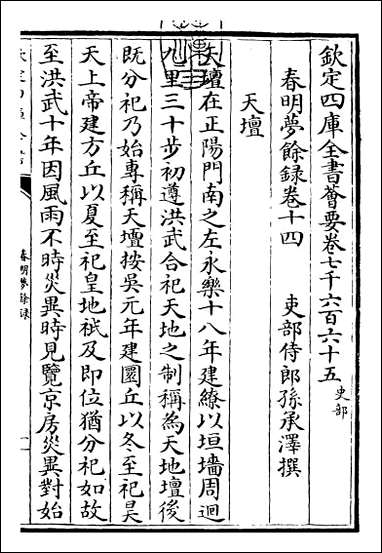 欽定四庫全書薈要卷七千六百六十五 史部
春明夢餘録卷十四 吏部侍郎孫承澤撰
天壇
天壇在正陽門南之左永樂十八年建繚以垣墻周迴
九里三十步初遵洪武合祀天地之制稱為天地壇後
既分祀乃始專稱天壇按吳元年建圜丘以冬至祀昊
天上帝建方丘以夏至祀皇地祗及即位猶分祀如故
至洪武十年因風雨不時災異時見覽京房災異對始
春明夢餘録
一